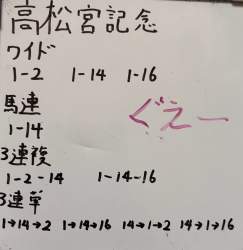 高松宮記念
ワイド
1-2 1-14 1-16
馬連
1-14
ぐえー
3連複
1-2-14 1-14-16
3連単
1→14→2 1→14→16 14→1→2 14→1→16